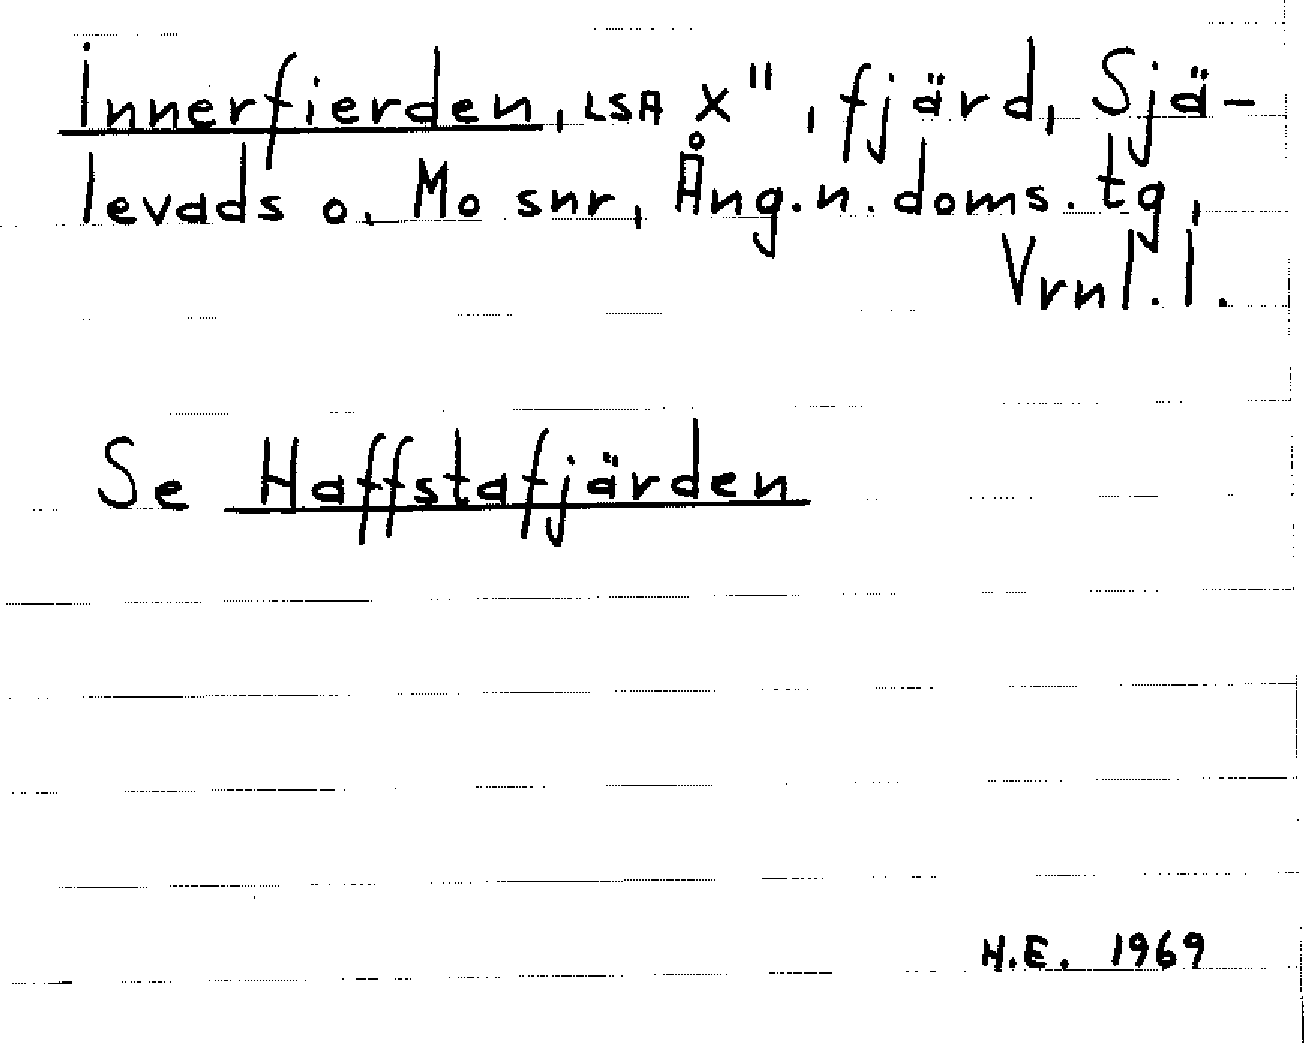 Innerfierden, LSA X", fjärd, Sjä-
levads o. Mo snr, Ång.n. doms. tg,
Vrnl. l.
Se Haffstafjärden
H.E. 1969